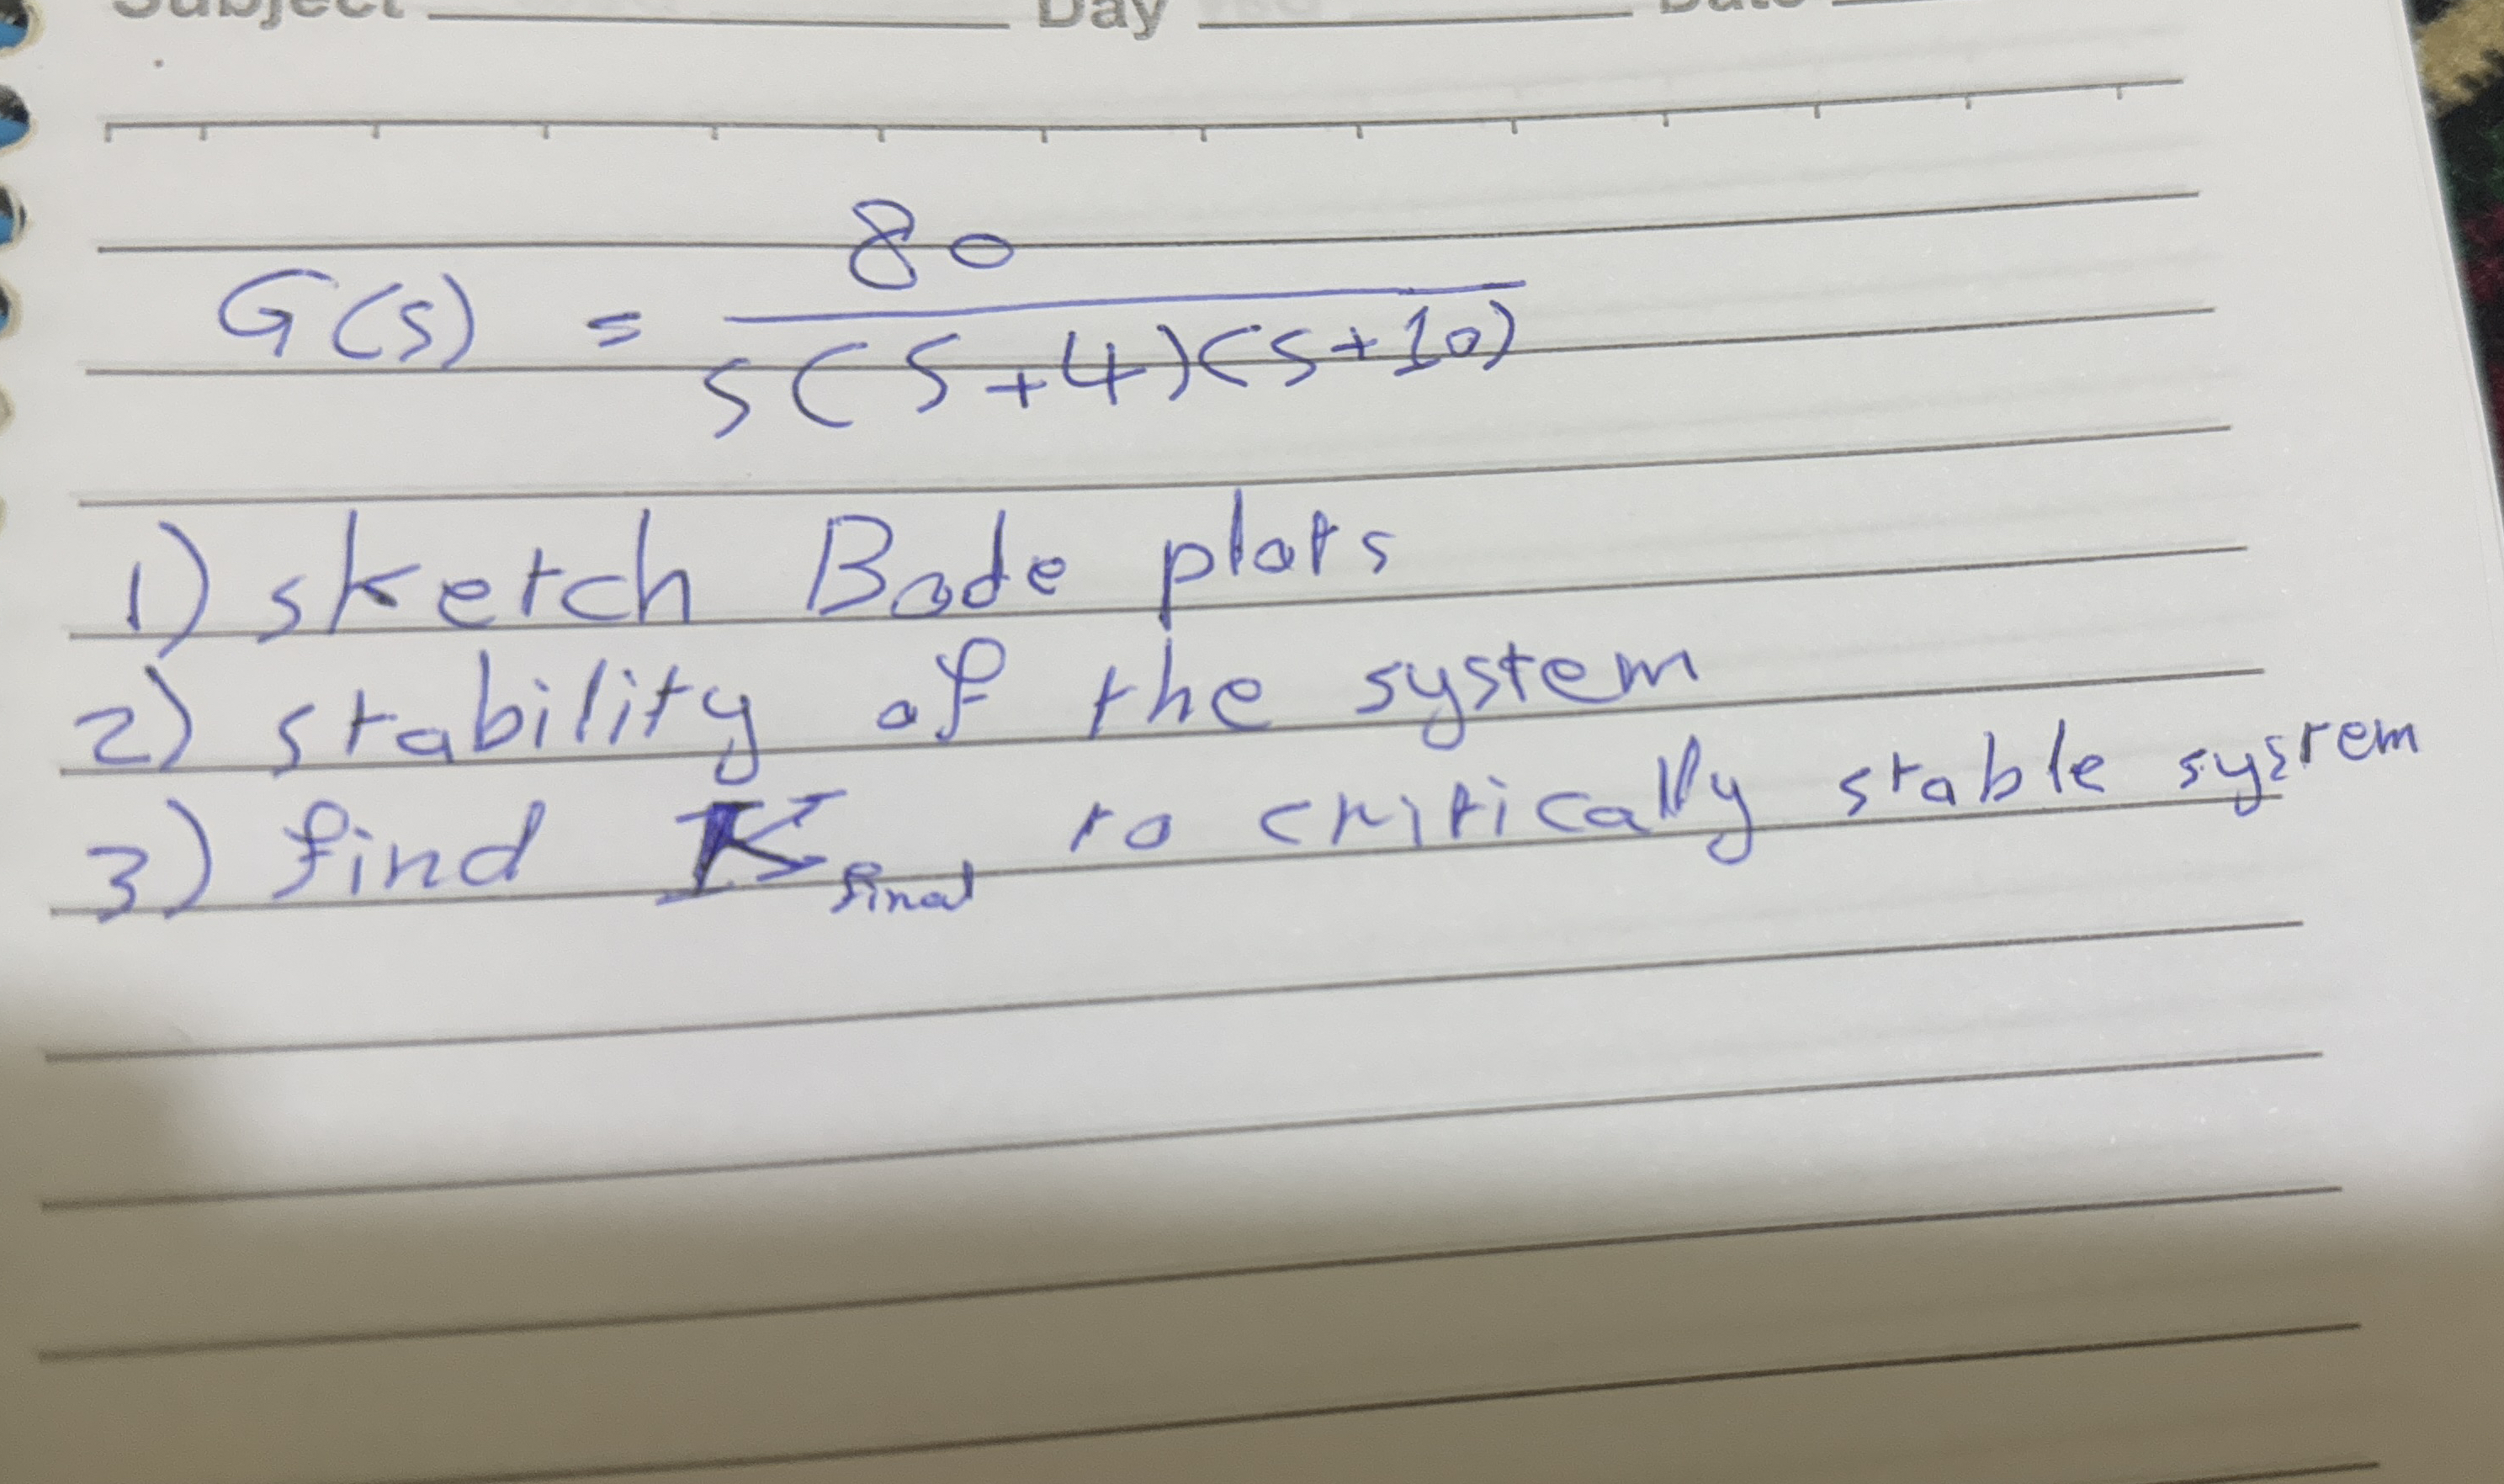 Subject Day Date
G(s) = 80
s(s+4)(s+10)
1) sketch Bode plots
2) stability of the system
3) find K final to critically stable system